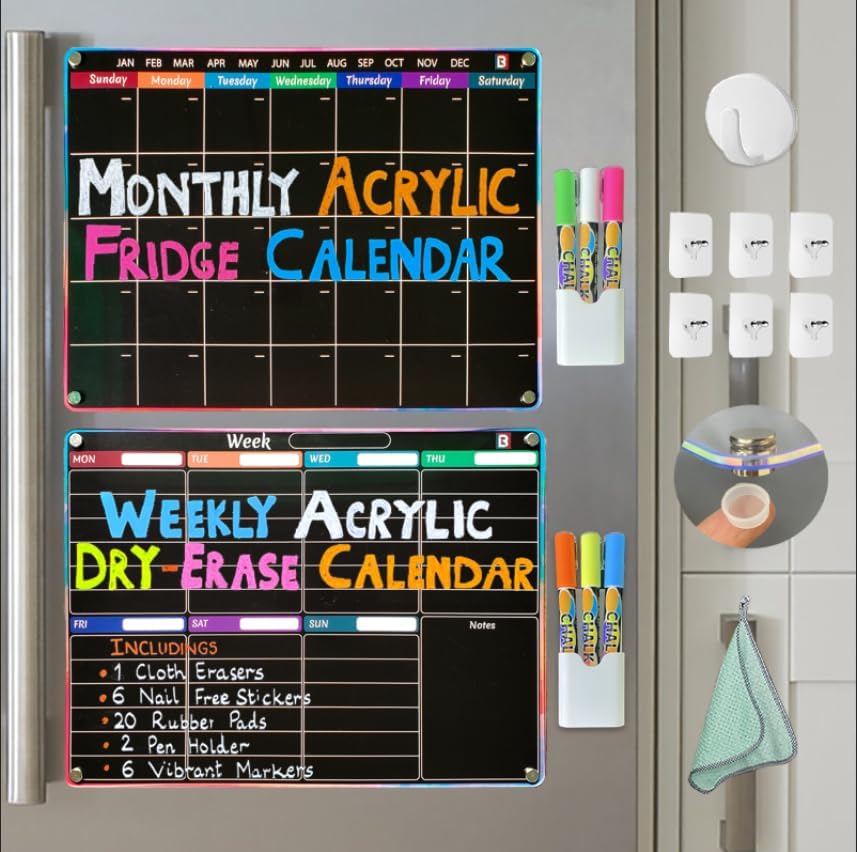 JAN FEB MAR APR MAY JUN JUL AUG SEP OCT NOV DEC B
Sunday Monday Tuesday Wednesday Thursday Friday Saturday
MONTHLY ACRYLIC
FRIDGE CALENDAR
CHALK CHALK
Week B
MON TUE WED THU
WEEKLY ACRYLIC
DRY-ERASE CALENDAR
CHALK CHALK CHALK
FRI SAT SUN Notes
INCLUDINGS
• 1 Cloth Erasers
• 6 Nail Free Stickers
• 20 Rubber Pads
• 2 Pen Holder
• 6 Vibrant Markers